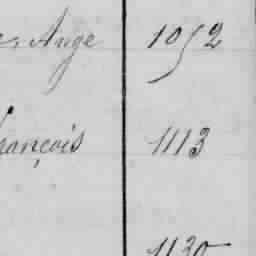 e, Ange 1052
rançois 1113
1130